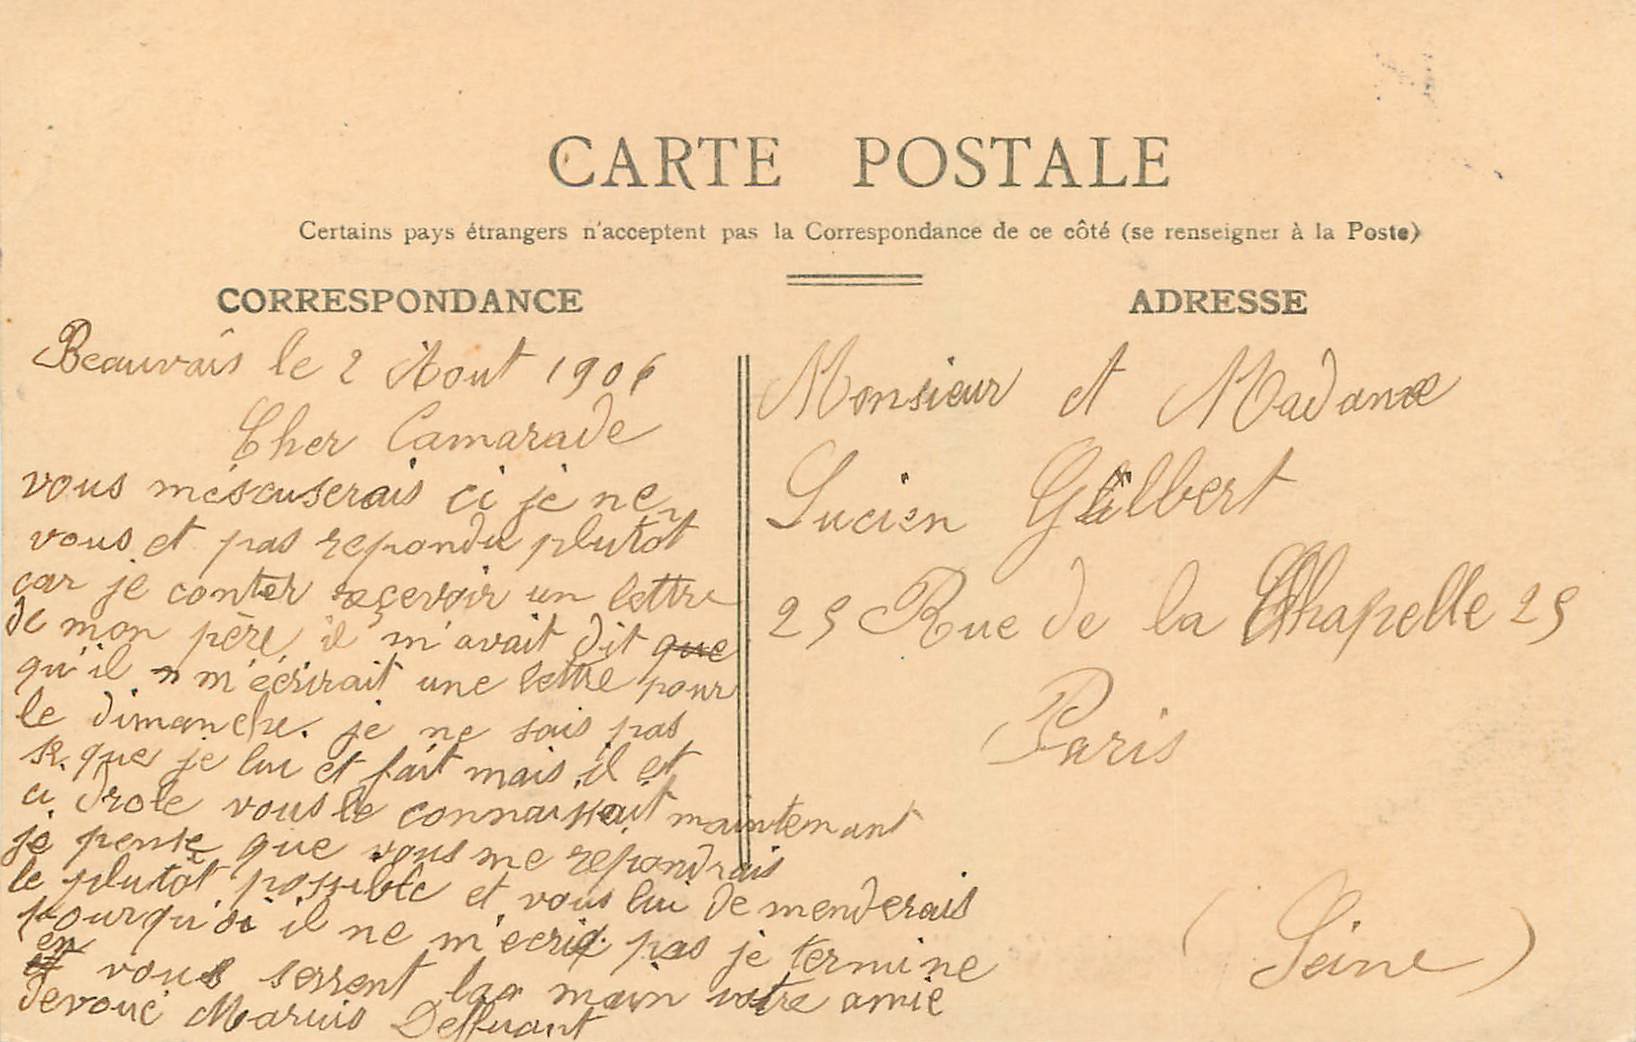 CARTE POSTALE
Certains pays étrangers n'acceptent pas la Correspondance de ce côté (se renseigner à la Poste)
CORRESPONDANCE
Beauvais le 2 Aout 1906
Cher Camarade
vous mescuserais ci je ne
vous et pas repondu plutôt
car je conter reçevoir un lettre
de mon père il m'avait dit que
qu'il m'écrirait une lettre pour
le dimanche. je ne sais pas
se que je lui et fait mais il et
ci drole vous le connaissait maintenant
je pense que vous me repondrais
le plutôt possible et vous lui demenderais
pourqu'oi il ne m'ecrit pas je termine
en vous serrent la main votre amie
devoué Marius Deffuant
ADRESSE
Monsieur et Madame
Lucien Gilbert
25 Rue de la Chapelle 25
Paris
(Seine)